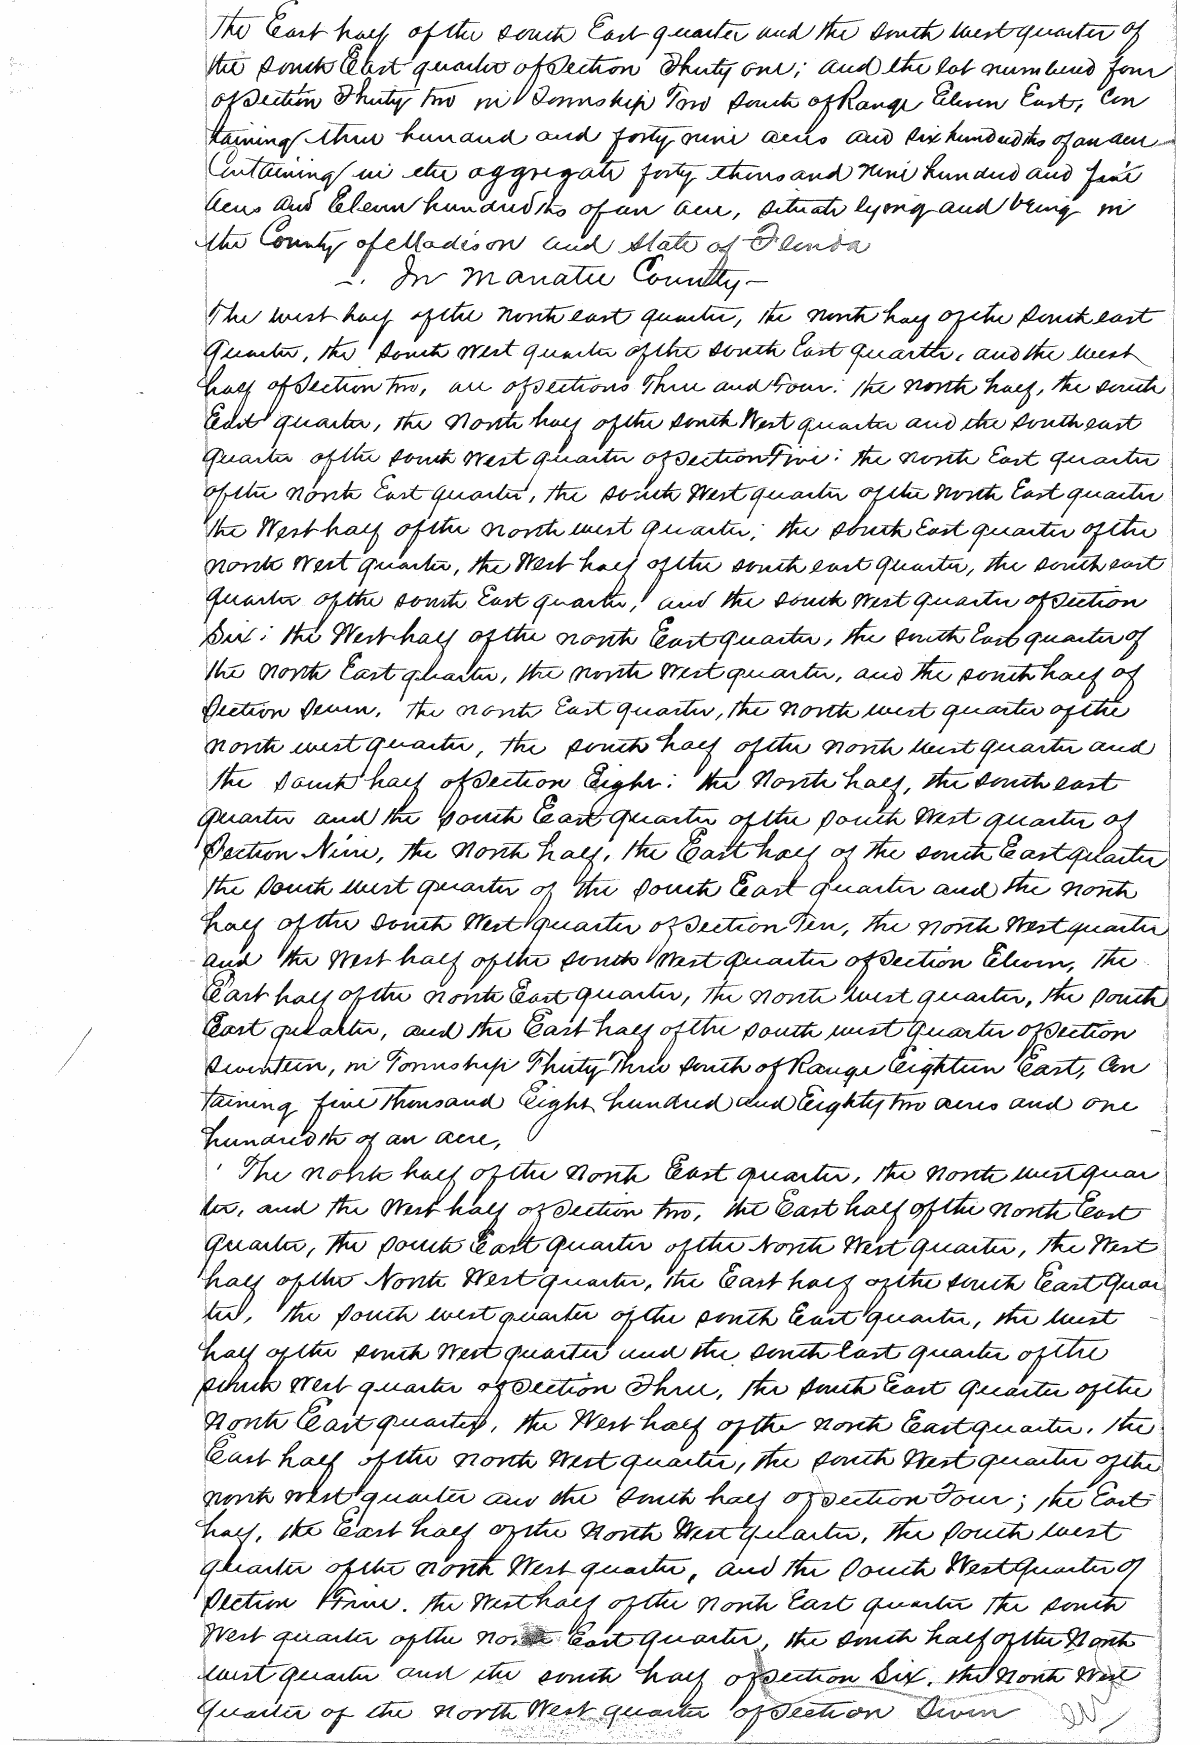 The East half of the South East quarter and the South West quarter of
the South East quarter of Section Thirty one; and the lot numbered four
of Section Thirty two in Township Two South of Range Eleven East, Con
taining three hundred and forty nine acres and six hundredths of an acre
Containing in the aggregate forty thousand nine hundred and five
acres and Eleven hundredths of an acre, situate lying and being in
the County of Madison and State of Florida
In Manatee County—
The west half of the north east quarter, the north half of the South east
Quarter, the South West quarter of the South East quarter, and the west
half of Section two, all of Sections Three and Four: the north half, the South
East quarter, the North half of the South West quarter and the South east
quarter of the South West quarter of Section Five: the north East quarter
of the north East quarter, the South West quarter of the North East quarter
the West half of the north west quarter; the South East quarter of the
north West quarter, the West half of the South east quarter, the South east
quarter of the South East quarter, and the South West quarter of Section
Six: the West half of the north East quarter, the South East quarter of
the north East quarter, the north West quarter, and the South half of
Section Seven. the north East quarter, the north west quarter of the
north west quarter, the South half of the north west quarter and
the South half of Section Eight: the North half, the South east
quarter and the South East quarter of the South West quarter of
Section Nine, the North half, the East half of the South East quarter
the South west quarter of the South East quarter and the north
half of the South West quarter of Section Ten, the North West quarter
and the West half of the South West quarter of Section Eleven, the
East half of the north East quarter, the north west quarter, the South
East quarter, and the East half of the South west quarter of Section
Seventeen, in Township Thirty Three South of Range Eighteen East, Con
taining five thousand Eight hundred and Eighty two acres and one
hundredth of an acre,
The north half of the North East quarter, the North west quar
ter, and the West half of Section two, the East half of the North East
quarter, the South East quarter of the North West quarter, the West
half of the North West quarter, the East half of the South East quar
ter, the South west quarter of the South East quarter, the West
half of the South West quarter and the South East quarter of the
South West quarter of Section Three, the South East quarter of the
North East quarter, the West half of the north East quarter, the
East half of the North West quarter, the South West quarter of the
north west quarter and the South half of Section Four; the East
half, the East half of the North West quarter, the South west
quarter of the north West quarter, and the South West quarter of
Section Five. the West half of the North East quarter the South
West quarter of the North East quarter, the South half of the North
west quarter and the South half of Section Six, the North West
quarter of the North West quarter of Section Seven